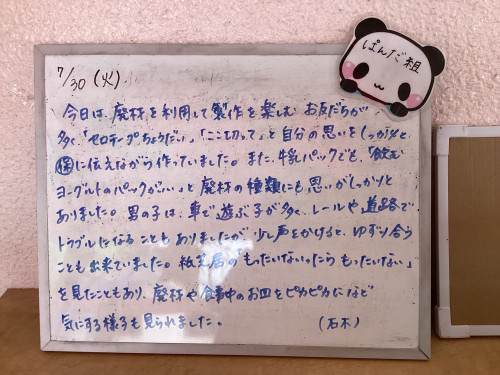 ぱんだ組
7/30(火)
今日は、廃材を利用して製作を楽しむ お友だちが
多く、「セロテープちょうだい」「ここ切って」と自分の思いをしっかりと、
保に伝えながら作っていました。また、牛乳パックでも、「飲む
ヨーグルトのパックがいい」と廃材の種類にも思いがしっかりと
ありました。男の子は、車で遊ぶ子が多く、レールや道路で
トラブルになることもありましたが少し声をかけると、ゆずり合う
ことも出来ていました。紙芝居の「もったいないったら もったいない」
を見たこともあり、廃材や食事中のお皿をピカピカになど
気にする様子も見られました。
(石木)